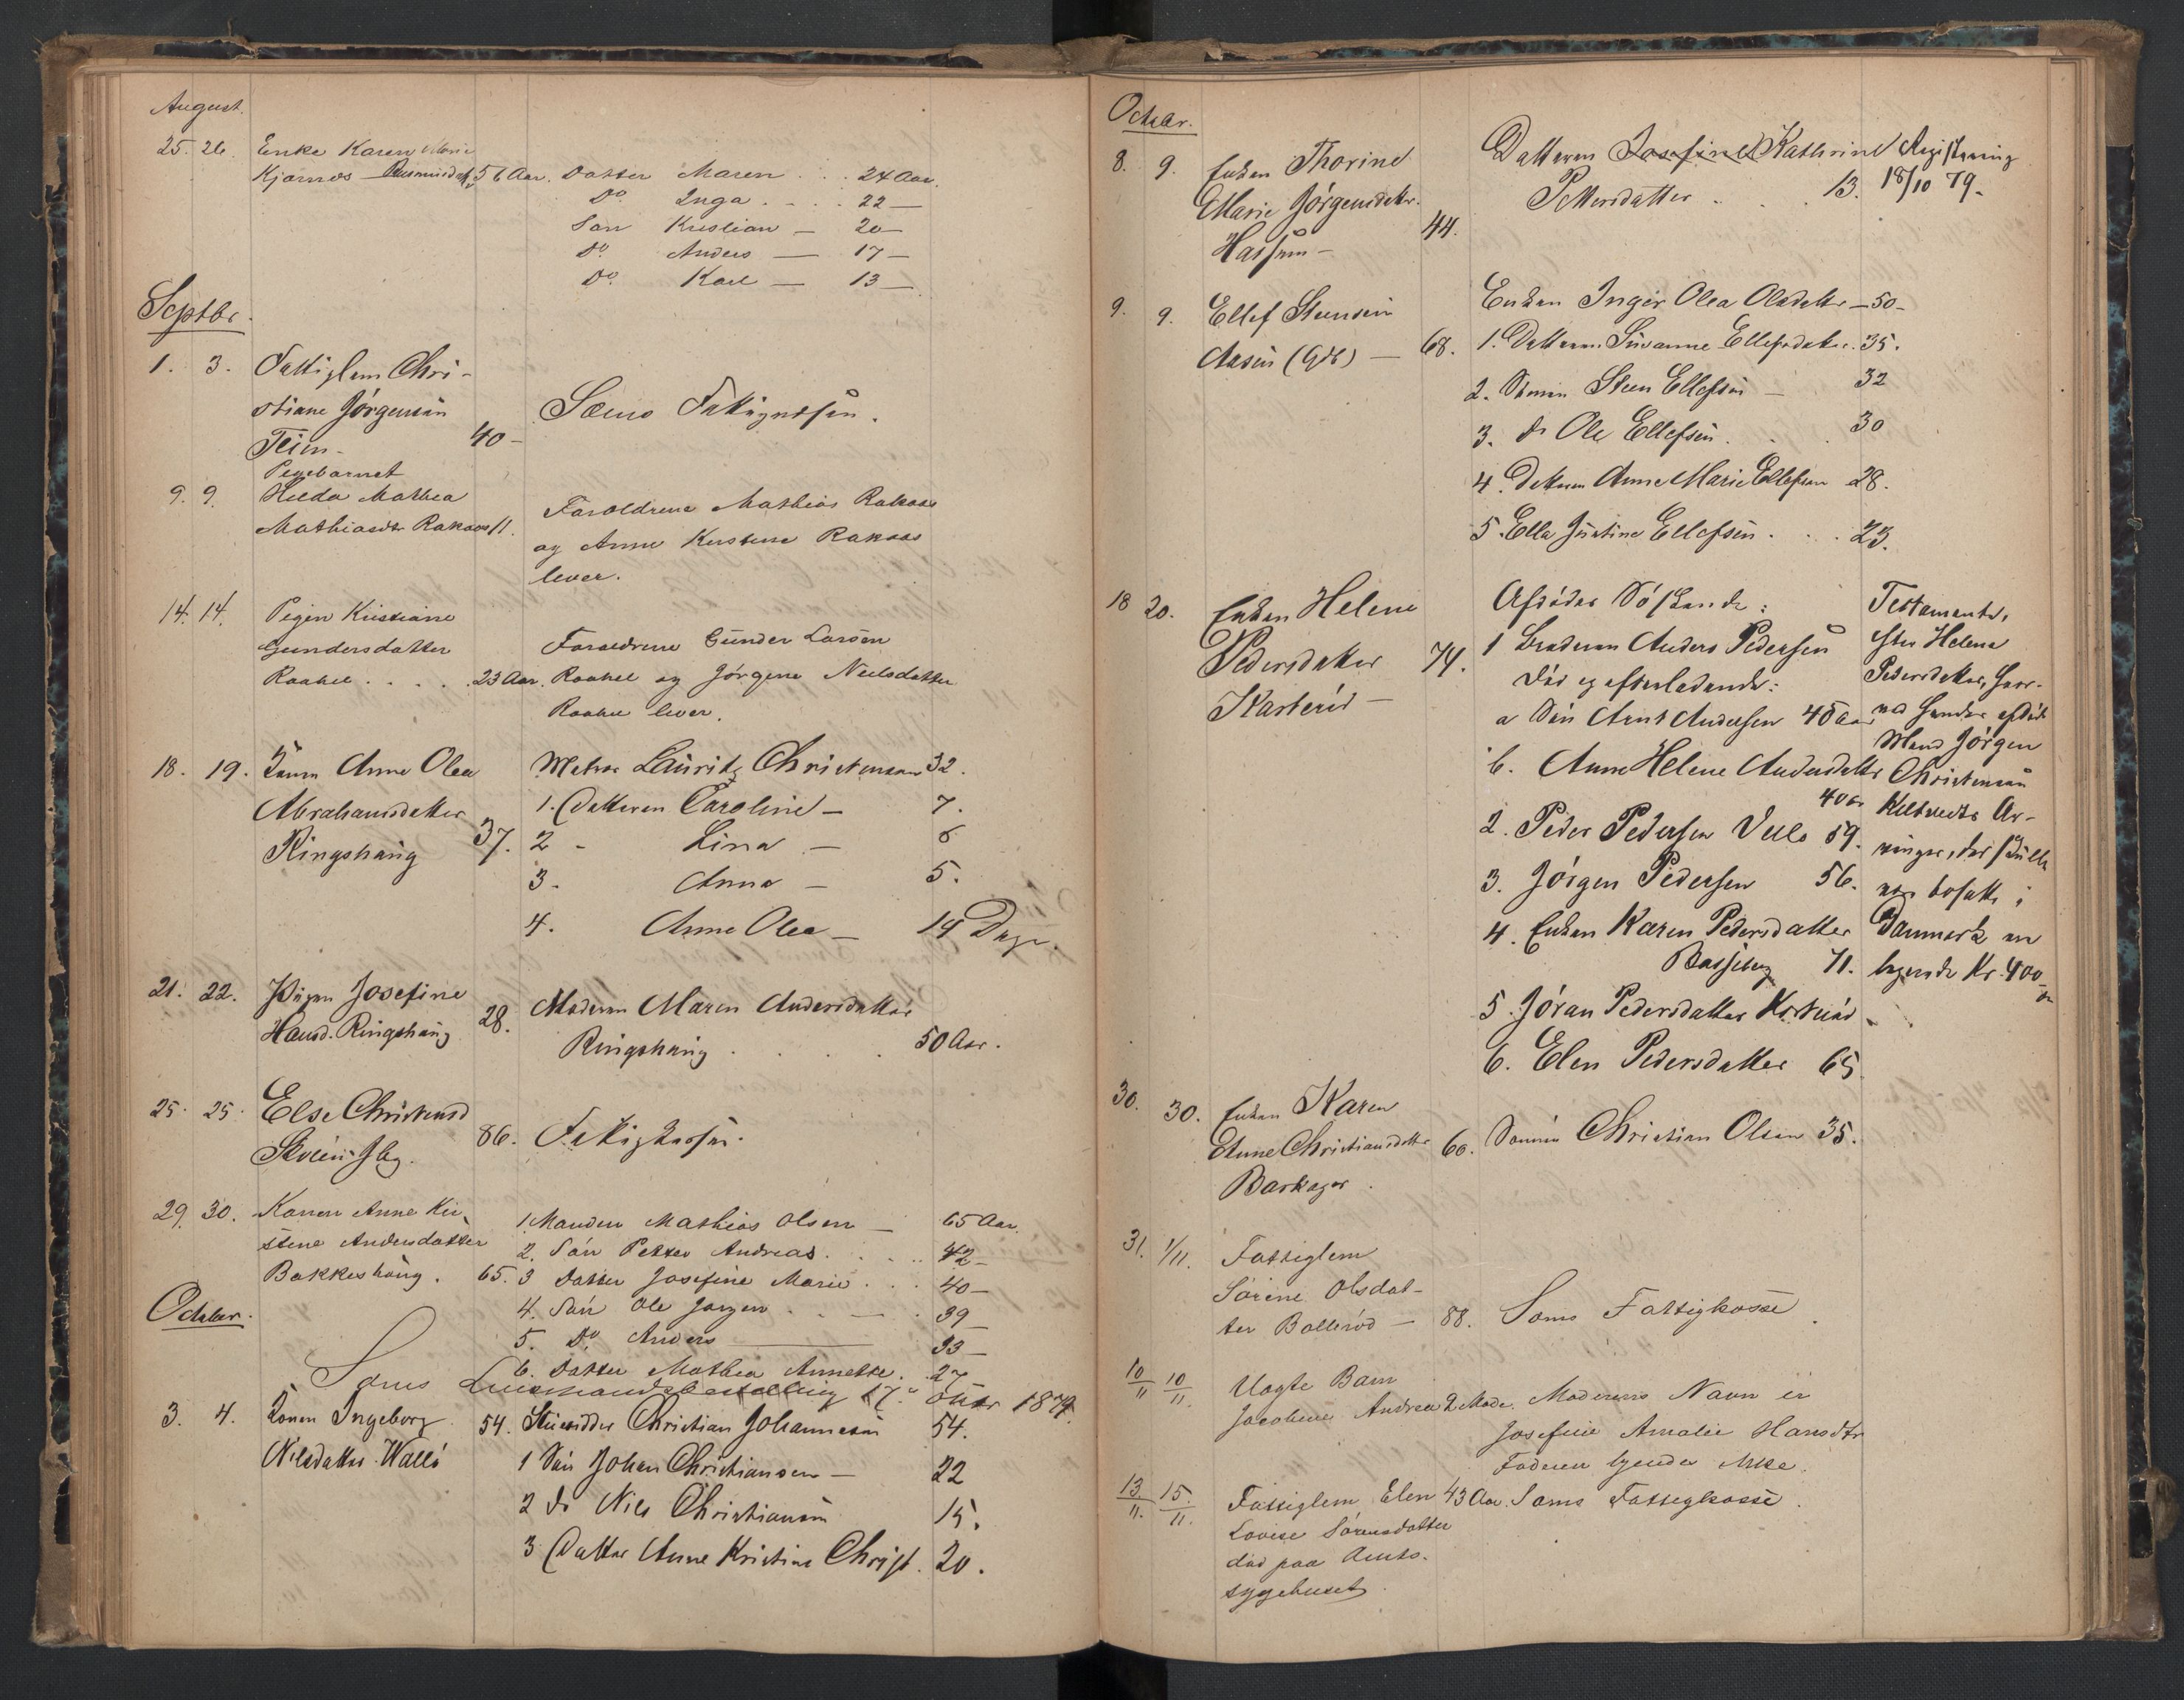 August.
25. 26. Enke Karen Marie
Kjærnes Rasmusdatr 56 Aar. Datter Maren . . . 24 Aar.
Do Inga . . . . 22 —
Søn Kristian — 20 —
Do. Anders — 17 —
Do. Karl — 13 —
Septbr.
1. 3. Fattiglem Chri-
stiane Jörgensön
Teien - 40 - Sems Fattigvæsen.
Pigebarnet
9. 9. Hilda Mathea
Mathiasdtr Rakaas 11. Foroldrene Mathias Rakaas
og Anne Kirstine Rakaas
lever.
14. 14. Pigen Kristiane
Gundersdatter Foraldrene Gunder Larsen
Raakel . . . . . 23 Aar. Raakel og Jørgine Neilsdatter
Raakel lever.
18. 19. Konen Anne Olea Matros Lauritz Christensen 32.
Abrahamsdatter 1. Datteren Caroline — 7.
Ringshaug 37. 2 - Lina — 6
3. Anna — 5.
4. Anne Olea — 14 Dage.
21. 22. Pigen Josefine 28. Moderen Maren Andersdatter
Hansd. Ringshaug Ringshaug . . . . 50 Aar.
25. 25. Else Christensd
86. Fattigkassen.
29. 30. Konen Anne Kir-
stine Andersdatter 1. Manden Mathias Olsen — 65 Aar.
2. Søn Petter Andreas. . . . 42 —
Bakkeshaug. 65. 3 Datter Josefine Marie . . . 40 —
October. 4. Søn Ole Jørgen . . — . 39 —
5. Do Anders — 33 —
6. Datter Mathea Annette. . 27 —
Sems Lensmandsbestilling 17. Oktbr 1879.
3. 4. Konen Ingeborg 54. Christian Johannesen 54.
Nilsdatter Wallö 1 Sön Johan Christiansen — 22
2 do Nils Christiansen 15.
3 Datter Anne Kristine Christ. 20.
Octobr.
8. 9. Enken Thorine Datteren Josefine Kathrine Registrering
Marie Jörgensdatr. Pettersdatter . . . 13. 18/10 79.
Hassum — 44.
9. 9. Ellef Steensen Enken Inger Olea Olsdatter — 50 -
Aasen (Gdb) — 68. 1. Datteren Susanne Ellefsdatter. 35.
2. Sönnen Steen Ellefsen — 32
3. do Ole Ellefsen . . . 30
4. Datteren Anne Marie Ellefsen 28.
5. Ella Justine Ellefsen . . . 23.
18 20. Enken Helene Afdødes Söskende: Testamente,
Pedersdatter 74. 1 Broderen Anders Pedersen efter Helene
Karteröd — död og efterladende: Pedersdatter, hvor-
a Sön Arnt Andersen 45 Aar ved hendes afdöde
Mand Jörgen
b. Anne Helene Andersdatter Christensen
40 Aar Ar-
2. Peder Pedersen 59. vinger, der skulle
3. Jörgen Pedersen 56. være bosatte i
4. Enken Karen Pedersdatter Danmark er
Basseberg 71. Kr. 400
5. Jöran Pedersdatter
6. Elen Pedersdatter 65
30. 30. Enken Karen
Anne Christiansdatter 60. Sönnen Christian Olsen 35.
Barkager .
31. 1/11. Fattiglem
Sørine Olsdat-
ter Bollerød — 88. Sems Fattigkasse .
10/11 10/11. Uægte Barn
Jacobine Andrea 2 Mdr. Moderens Navn er
Josefine Amalie Hansdtr
Faderen kjendes ikke.
13/11. 15/11. Fattiglem Elen 43 Aar. Sems Fattigkasse .
Lovise Sørensdatter
død paa Amts-
sygehuset.